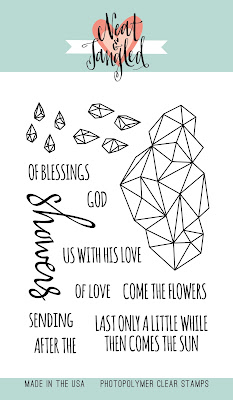 Neat & Tangled
OF BLESSINGS
GOD
showers
US WITH HIS LOVE
OF LOVE
COME THE FLOWERS
SENDING
AFTER THE
LAST ONLY A LITTLE WHILE
THEN COMES THE SUN
MADE IN THE USA
PHOTOPOLYMER CLEAR STAMPS